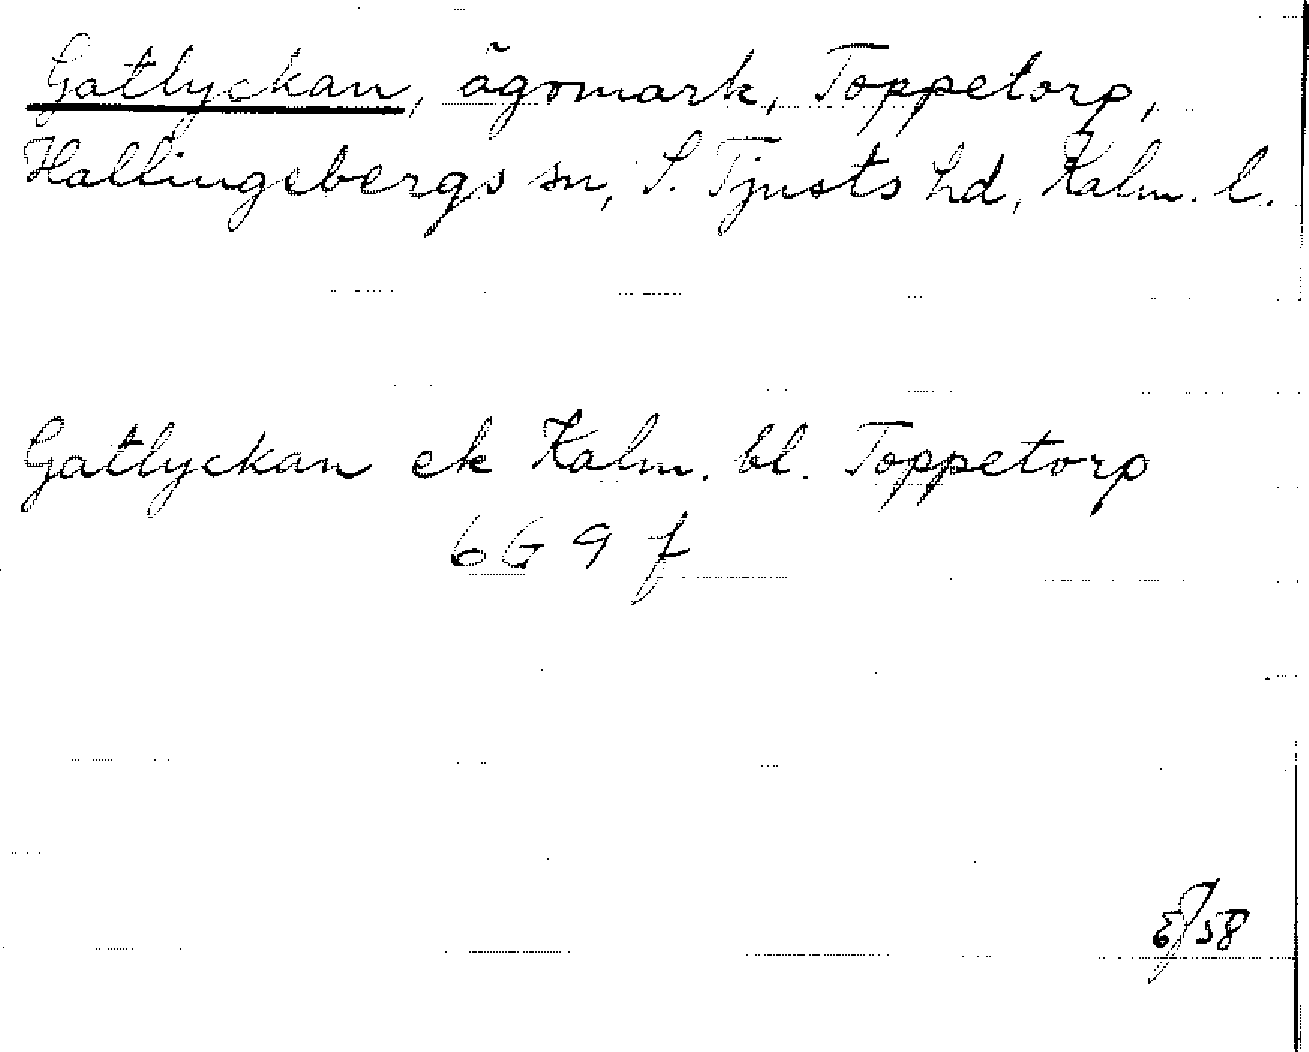 Gatlyckan, ägomark, Toppetorp,
Hallingebergs sn, S. Tjusts hd, Kalm. l.
Gatlyckan ek Kalm. bl. Toppetorp
6 G 9 f
58